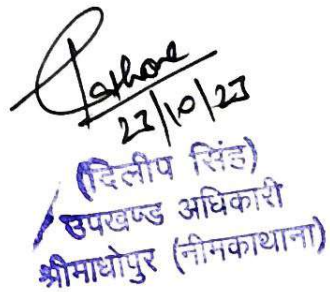 Rathore
23/10/23
(दिलीप सिंह)
उपखण्ड अधिकारी
श्रीमाधोपुर (नीमकाथाना)